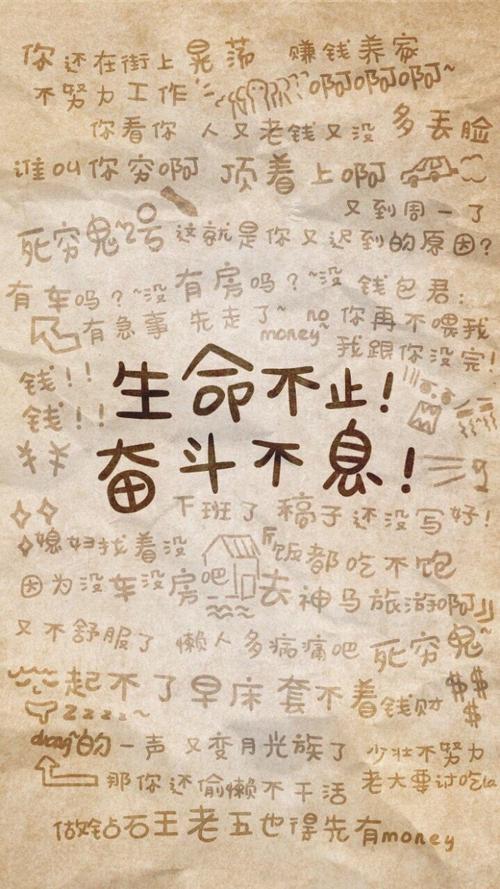 你还在街上晃荡 赚钱养家
不努力工作 啊啊啊啊~
你看你 人又老钱又没 多丢脸
谁叫你穷啊 顶着上啊
又到周一了
死穷鬼~2号 这就是你又迟到的原因?
有车吗?~没有房吗?~没 钱包君:
有急事 先走了~ no money~ 你再不喂我
我跟你没完!
钱!! 生命不止!
钱!!
奋斗不息!
下班了 稿子还没写好!
媳妇找着没 饭都吃不饱
因为没车没房吧 去神马旅游啊!!
又不舒服了 懒人多病痛吧 死穷鬼~
起不了早床 套不着钱财 $$ $$
zzzz~
duang~的一声 又变月光族了 少壮不努力
那你还偷懒不干活 老大要讨吃la
做钻石王老五也得先有money